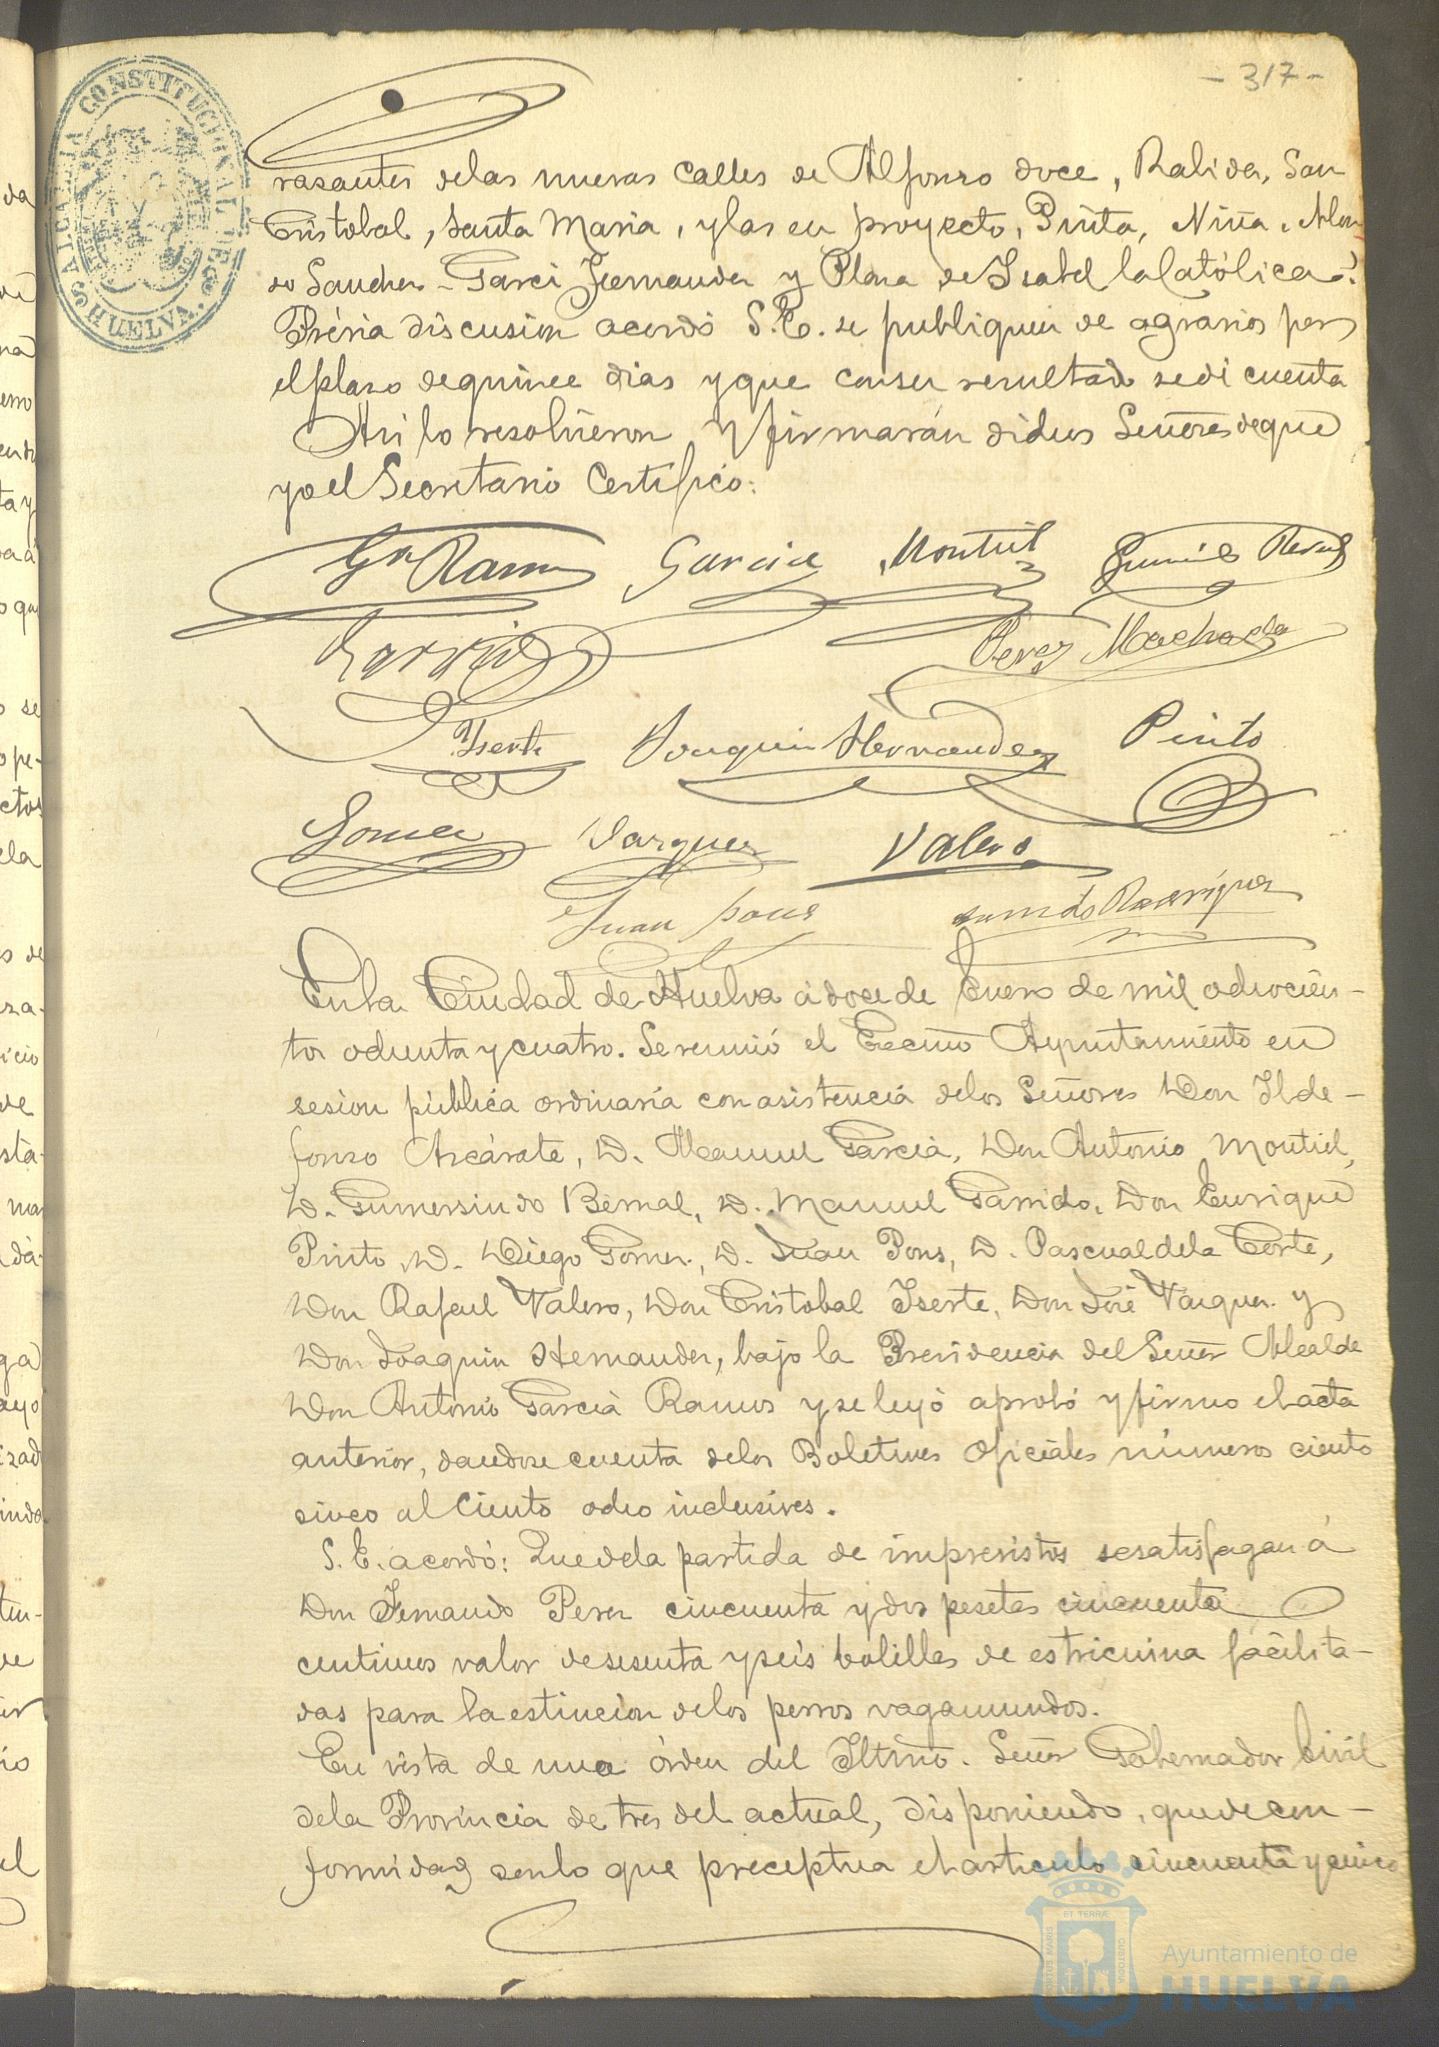 - 317 -
ALCALDIA CONSTITUCIONAL DE HUELVA.
rasantes delas nuevas calles de Alfonso doce, Rabida, San
Cristobal, Santa Maria, y las en proyecto, Pinta, Niña, Alon-
so Sanchez - Garci Fernandez y Plaza de Isabel la Católica.
Prévia discusion acordó S.E. se publiquen de agravios por
el plazo de quince dias y que con su resultado se dé cuenta
Asi lo resolvieron y firmarán dichos Señores de que
yo el Secretario Certifico:
Ga Ramos Garcia Montiel Bernal
Garrido Perez Machado
Yserte Joaquin Hernandez Pinto
Gomez Vazquez Valero
Juan Pons Rodriguez
En la Ciudad de Huelva á doce de Enero de mil ochocien-
tos ochenta y cuatro. Se reunió el Excmo Ayuntamiento en
sesion pública ordinaria con asistencia delos Señores Don Ilde-
fonso Azcárate, D. Manuel Garcia, Don Antonio Montiel,
D. Gumersindo Bernal, D. Manuel Garrido, Don Enrique
Pinto, D. Diego Gomez, D. Juan Pons, D. Pascual dela Corte,
Don Rafael Valero, Don Cristobal Yserte, Don José Vazquez y
Don Joaquin Hernandez, bajo la Presidencia del Señor Alcalde
Don Antonio Garcia Ramos y se leyó aprobó y firmo el acta
anterior, dandose cuenta delos Boletines Oficiales números ciento
cinco al ciento ocho inclusives.
S.E. acordó: Que dela partida de imprevistos se satisfagan á
Don Fernando Perez cincuenta y dos pesetas cincuenta
centimos valor de sesenta y seis bolillas de estricnina facilita-
das para la estincion delos perros vagamundos.
En vista de una órden del Iltmo. Señor Gobernador Civil
dela Provincia de tres del actual, disponiendo, que de con-
formidad con lo que preceptua el articulo cincuenta y cinco
Ayuntamiento de
HUELVA